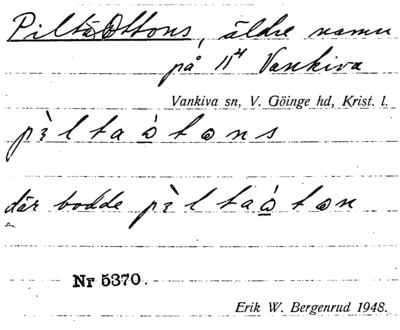 Piltå Ottons, äldre namn
på 11⁴ Vankiva
Vankiva sn, V. Göinge hd, Krist. l.
pìltaòtons
där bodde pìltaòton
Nr 5370.
Erik W. Bergenrud 1948.